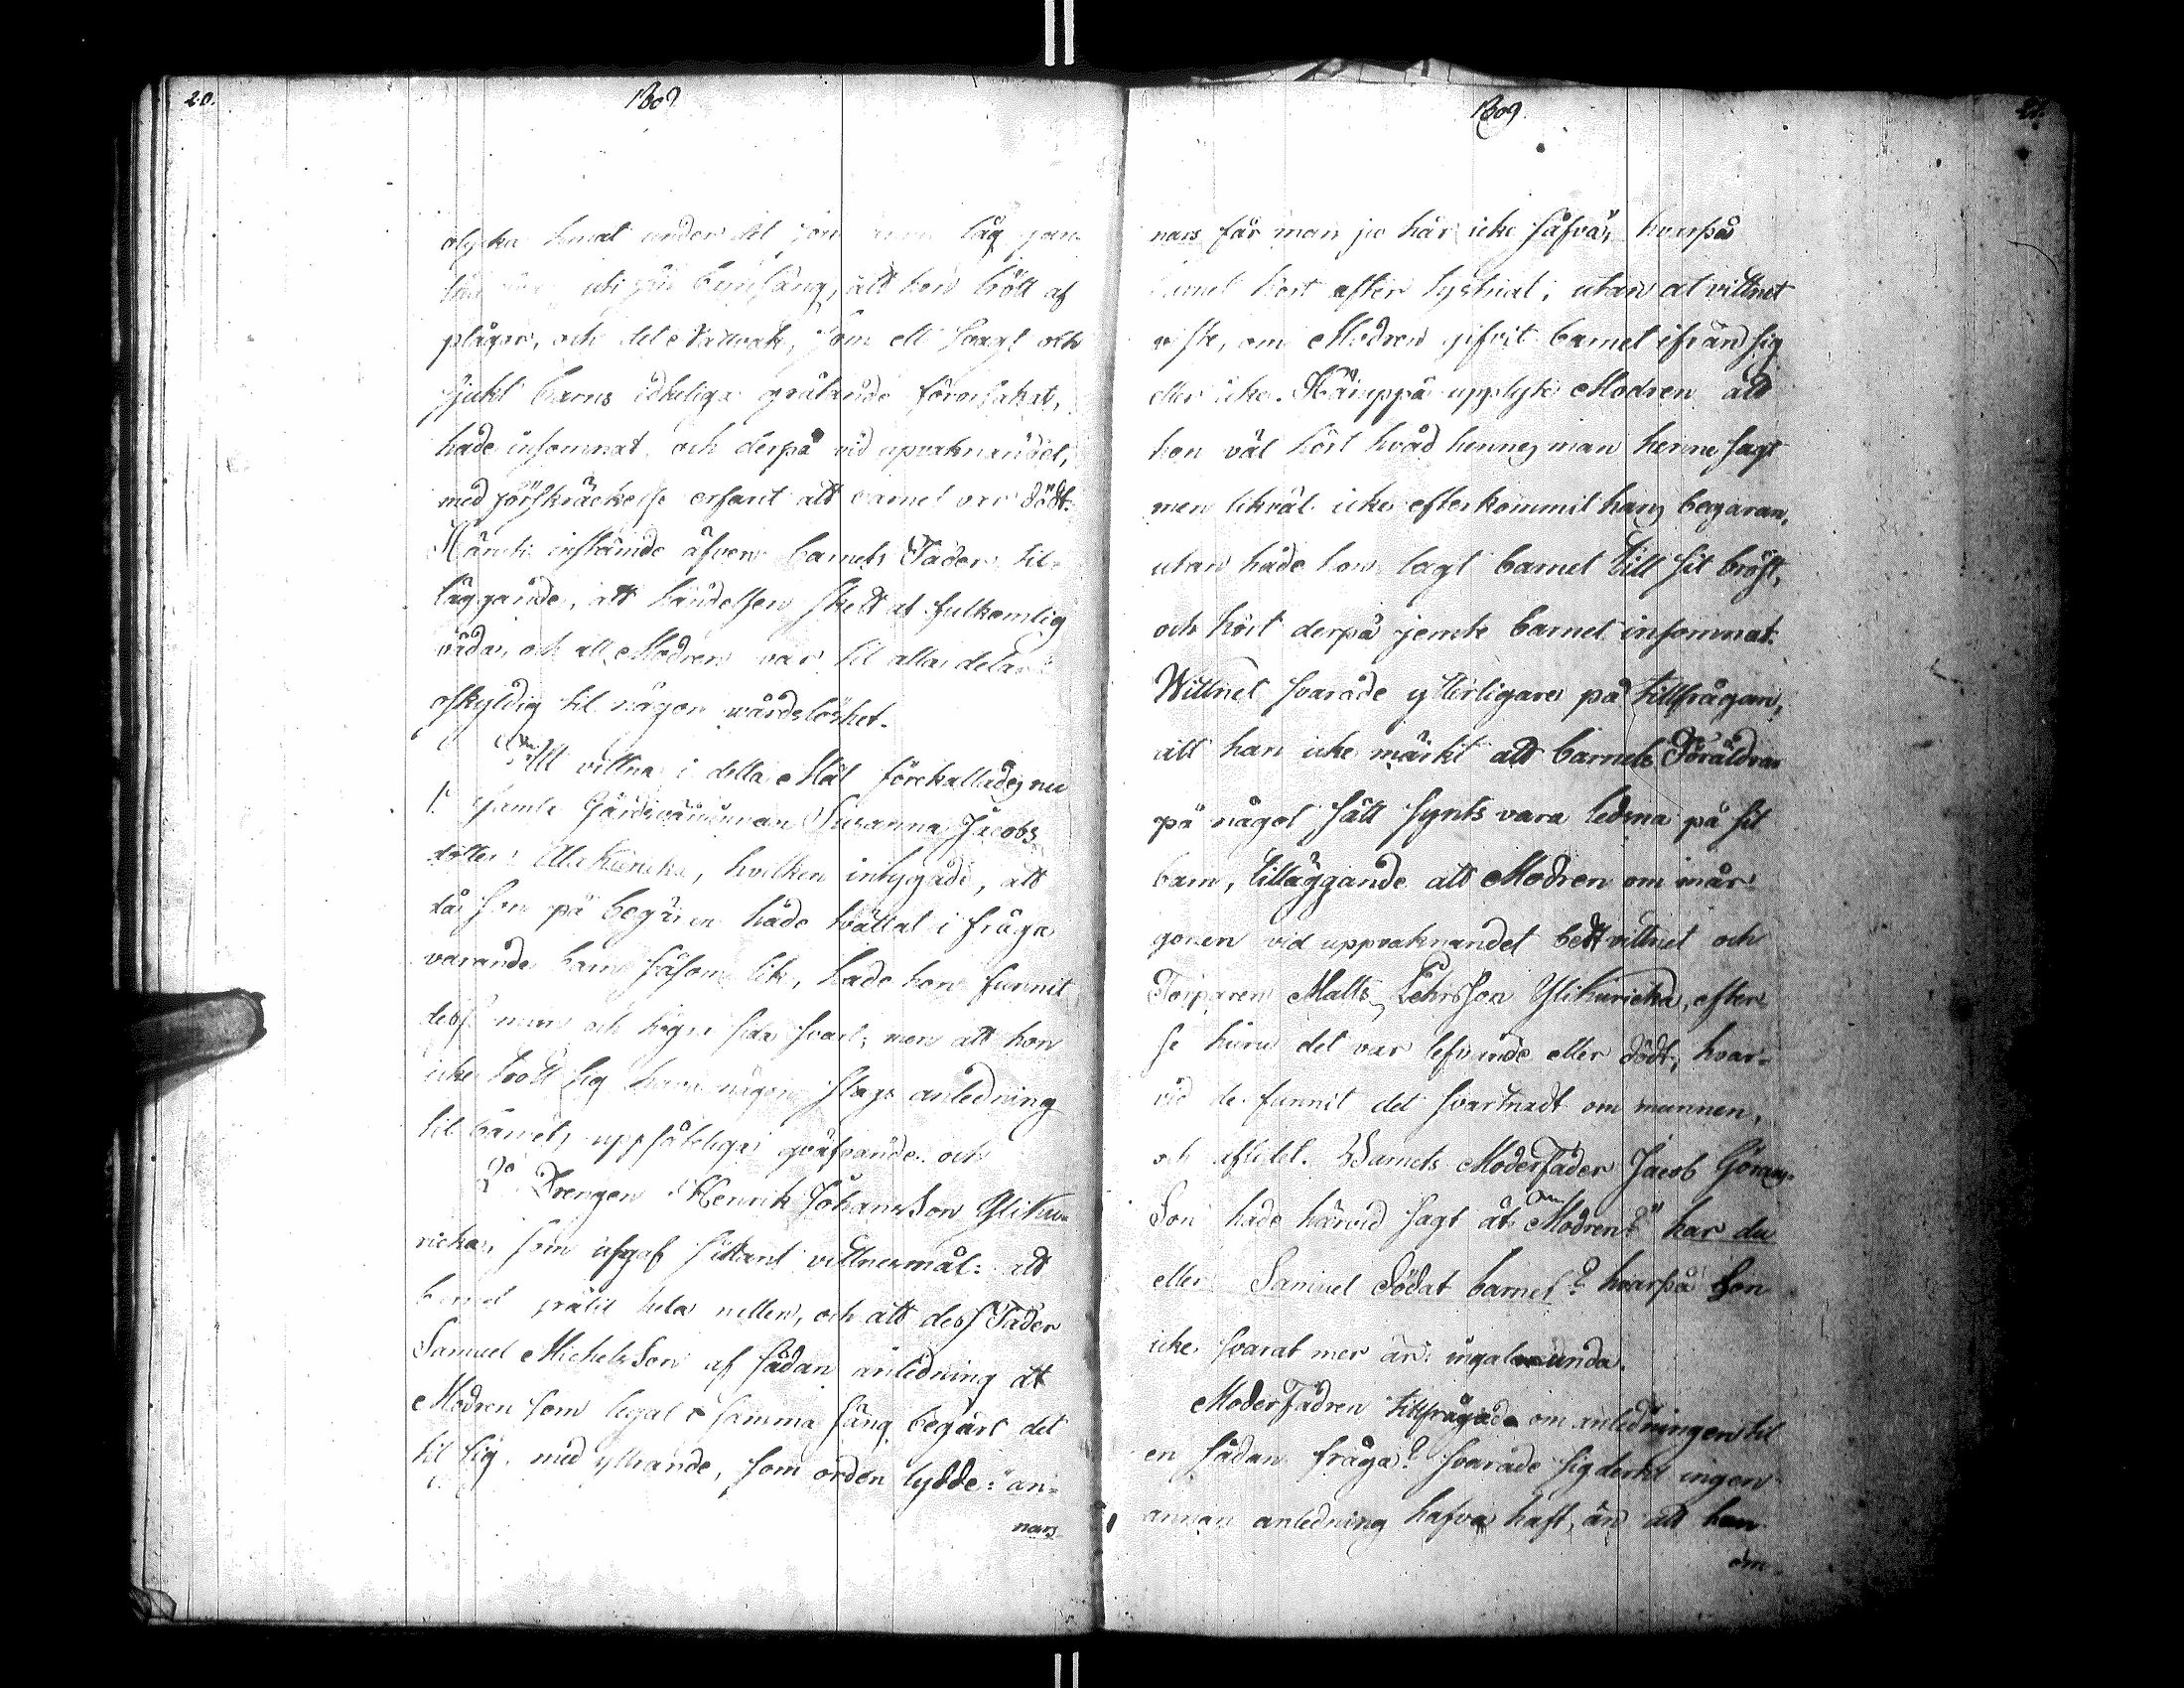 20.
1809
olycka händt under det hon låg
uti sin barnsäng, att hon trött af
plågor, och det Nattvak, som ett svagt och
sjukt barns idkeliga gråtande förorsakat,
hade insomnat, och derpå vid upvaknandet,
med förskräckelse erfarit att barnet var dödt.
Häruti instämde äfven barnets Fader til-
läggande, att händelsen skedt at fulkomlig
våda, och att Modren var til alla delar
oskyldig til någon wårdslöshet.
Att vittna i detta Mål förekallades nu
1o Gårdsvärdinnan Susanna Jacobs
dotter Alakuricka, hvilken intygade, att
då hon på begäran hade tvättat i fråga
varande barn såsom lik, hade hon funnit
dess mun och högra sida svart; men att hon
icke trott sig hafva någon slags anledning
til barnets uppsåteliga qväfvande. och
2o Drengen Henrik JohansSon Ylikur-
ricka, som afgaf sådant vittnesmål: att
barnet gråtit hela natten, och att dess Fader
Samuel MichelsSon af sådan anledning at
Modren som legat i samma säng begärt det
til sig, med yttrande, som orden lydde: "an-
nars
1809.
21.
nars får man ju här icke såfva", hvarpå
barnet kort efter tystnat; utan at vittnet
viste, om Modren gifvit barnet ifrån sig
eller icke. Häruppå upplyste Modren att
hon väl hört hvad hennes man henne sagt
men likväl icke efterkommit hans begäran,
utan hade hon lagt barnet till sit bröst,
och kort derpå jemte barnet insomnat.
Wittnet svarade ytterligare på tillfrågan,
att han icke märkt att barnets Föräldrar
på något sätt synts vara ledsna på sit
barn, tilläggande att Modren om mår-
gonen vid uppvaknandet bedt vittnet och
Torparen Matts Ylikuricka, efter-
se huru det var lefvande eller dödt; hvar-
vid de funnit det svartnadt om munnen,
och aflidet. Barnets Moderfader Jacob Görans-
Son hade härvid sagt åt Modren: "har du
eller Samuel dödat barnet"? hvarpå hon
icke svarat mer än: ingalunda.
ModerFadren tillfrågade om anledningen til
en sådan fråga? svarade sig dertil ingen
annan anledning hafva haft, än att han
om